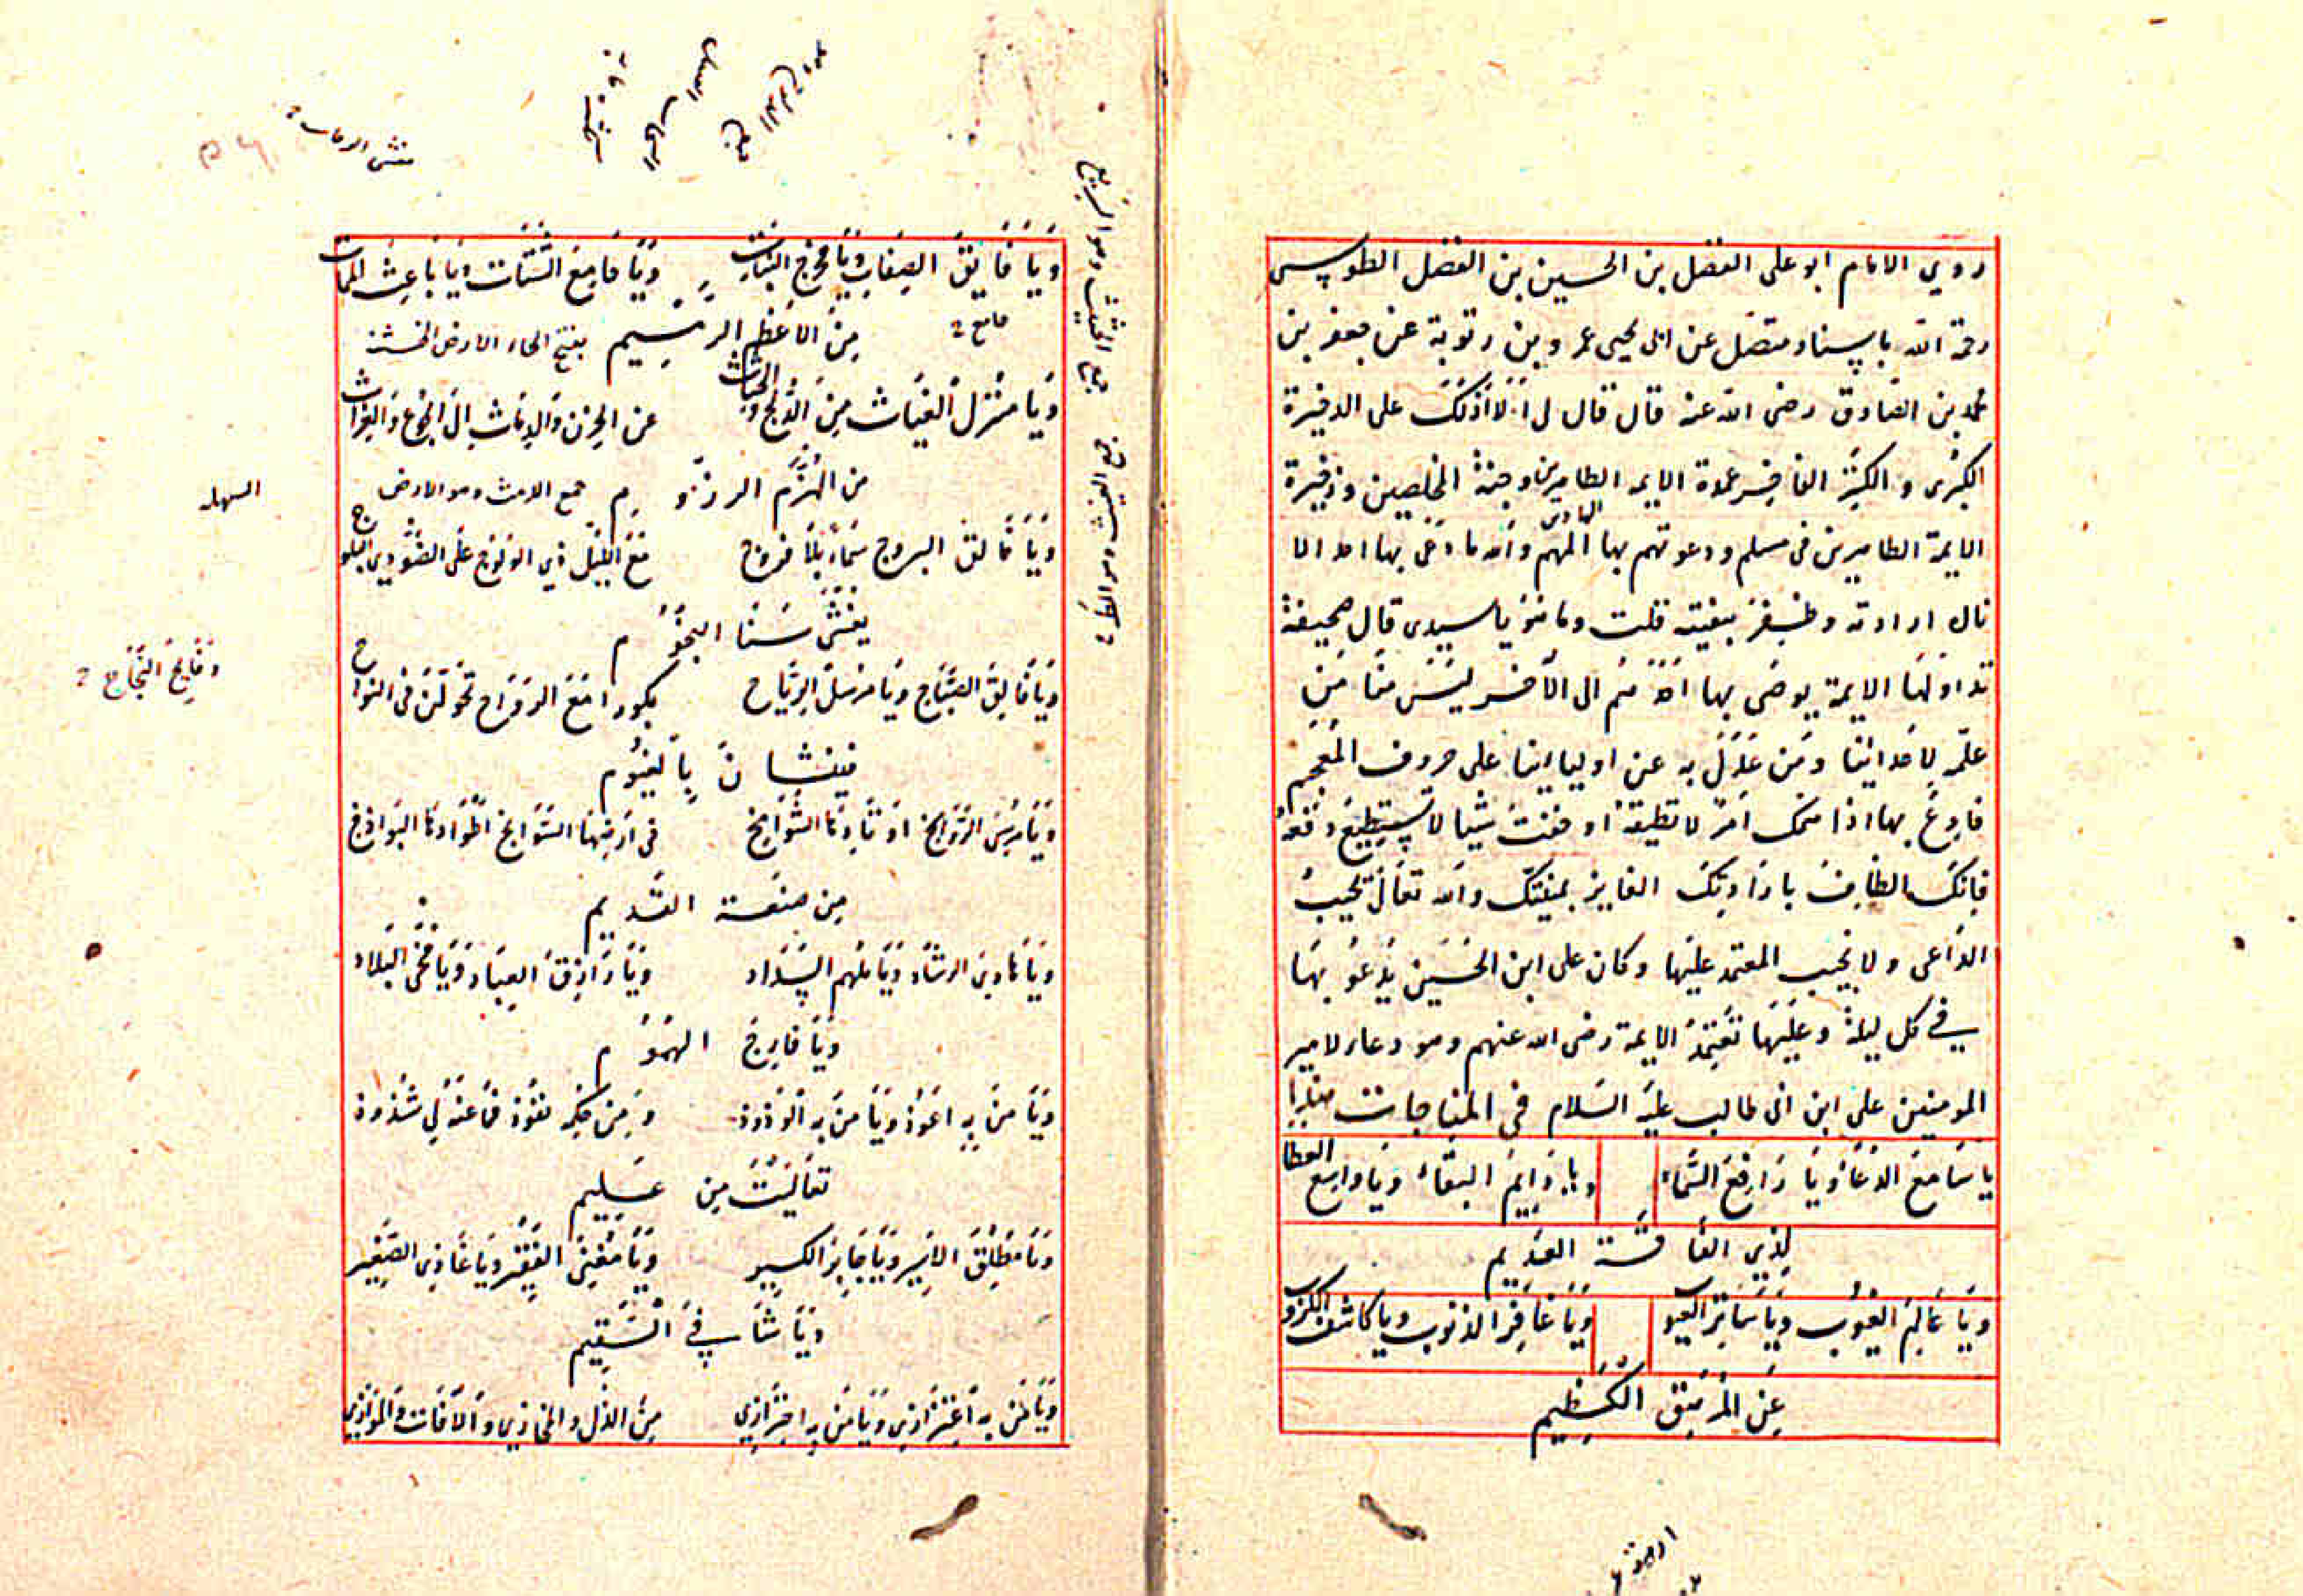 روي الامام ابو على الفضل بن الحسين بن الفضل الطوسي
رحمة الله باسناد متصل عن ابى يحيى عمرو بن رتوبة عن جعفر بن
محمد بن الصادق رضى الله عنه قال قال لى ألا أدلك على الذخيرة
الكبرى و الكنز الفاخر عمدة الايمه الطاهرين وجنة المخلصين وذخيرة
الايمة الطاهرين فى مسلم ودعوتهم بها المهم والله ما دعى بها احد الا
الهادى
نال ارادته وظفر ببغيته قلت وما هو يا سيدى قال صحيفة
تداولها الايمة يوصى بها احد منهم الى الأخر ليس منا من
علمه لاعدائنا ومن عدل به عن اوليائنا على حروف المعجم
فادع بها اذا همك امر لا تطيقه او خفت شيا لا تستطيع دفعه
فانك الظافر بارادتك الفايز بمنيتك والله تعالى يجيب
الداعى ولا يخيب المعتمد عليها وكان على ابن الحسين يدعو بها
في كل ليلة وعليها تعتمد الايمة رضى الله عنهم وهو دعاء لامير
المومنين على ابن ابى طالب عليه السلام فى المناجات
يا سامع الدعاء ويا رافع السماء ويا دايم البقاء ويا واسع العطا
لذي الفاقة العديم
ويا عالم الغيوب ويا ساتر العيوب ويا غافر الذنوب ويا كاشف الكروب
عن المرهق الكظيم
ويا فايق الصفات ويا مخرج النبات ويا جامع الشتات ويا باعث الممات
جامع
من الأعظم الرميم بفتح الحاء الارض الخشنة
ويا منزل الغياث من الدلج والحثاث عن الحزن والدماث الى الجوع والغراث
من الهزم الرزوم جمع الدمث وهو الارض
السهله
ويا فالق البروج سماء بلا فروج مع الليل ذي الولوج على الضوء ذي البلوج
يغشى سنا النجوم
ويا فالق الصباح ويا مرسل الرياح بكورا مع الرواح تحولن فى النواح
وفاتح النجاح
فينشان بالغيوم
ويا مرسي الرواسخ اوتادها الشوامخ فى ارضها السوابخ اطوادها البواذخ
من صنعة القديم
ويا هادى الرشاد ويا ملهم السداد ويا رازق العباد ويا محى البلاد
ويا فارج الهموم
ويا من به اعوذ ويا من به الوذ ومن حكمه نفوذ فما عنه لي شذوذ
تعاليت من عليم
ويا مطلق الاسير ويا جابر الكسير ويا مغنى الفقير ويا غاذى الصغير
ويا شافي السقيم
ويا من به اعتزازي ويا من به احترازي من الذل والمخازي والأفات والموازي
جمع الغيث وهو المطر